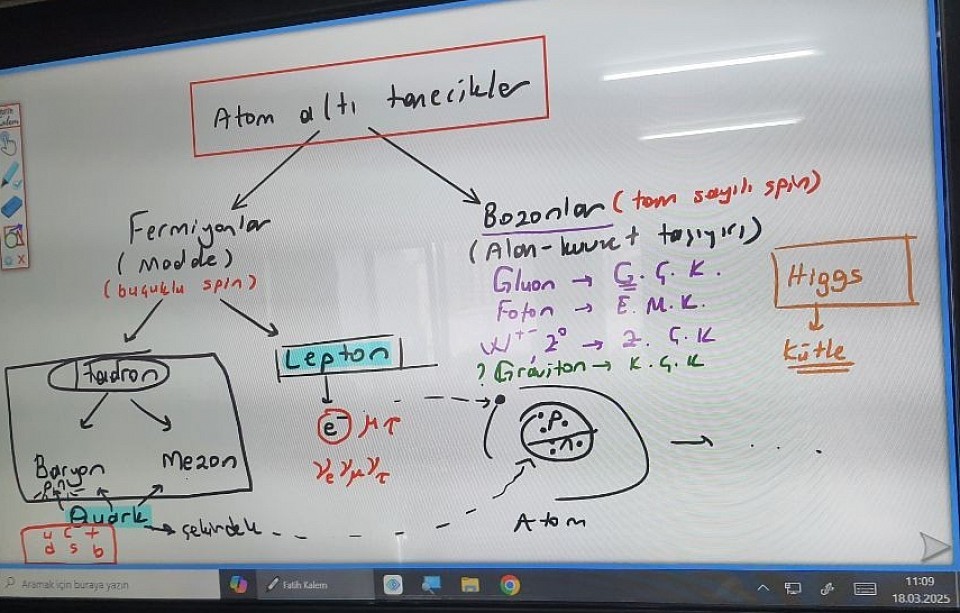 Atom altı tanecikler
Fermiyonlar
(Madde)
(buçuklu spin)
Bozonlar (tam sayılı spin)
(Alan-kuvvet taşıyıcı)
Gluon → G. Ç. K.
Foton → E. M. K.
W⁺⁻, Z⁰ → Z. Ç. K
? Graviton → K. Ç. K
Higgs
Kütle
Hadron
Baryon
Mezon
p, n
Quark → çekirdek
u c t
d s b
Lepton
e⁻ μ τ
νe νμ ντ
p.
n.
Atom
Aramak için buraya yazın
Fatih Kalem
11:09
18.03.2025